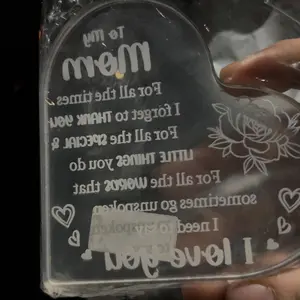 To My
mom
For all the times
I forget to THANK YOU
For all the SPECIAL &
LITTLE THINGS you do
For all the WORDS that
sometimes go unspoken
I need to say
I love you